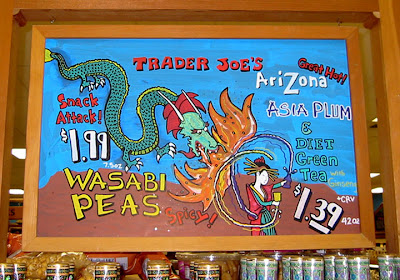 TRADER JOE'S
Snack
Attack!
$1.99
7.5oz
WASABI
PEAS
Spicy!
Great Hot!
AriZona
ASIA PLUM
&
DIET
Green
Tea
with
Ginseng
$1.39
+CRV
42oz